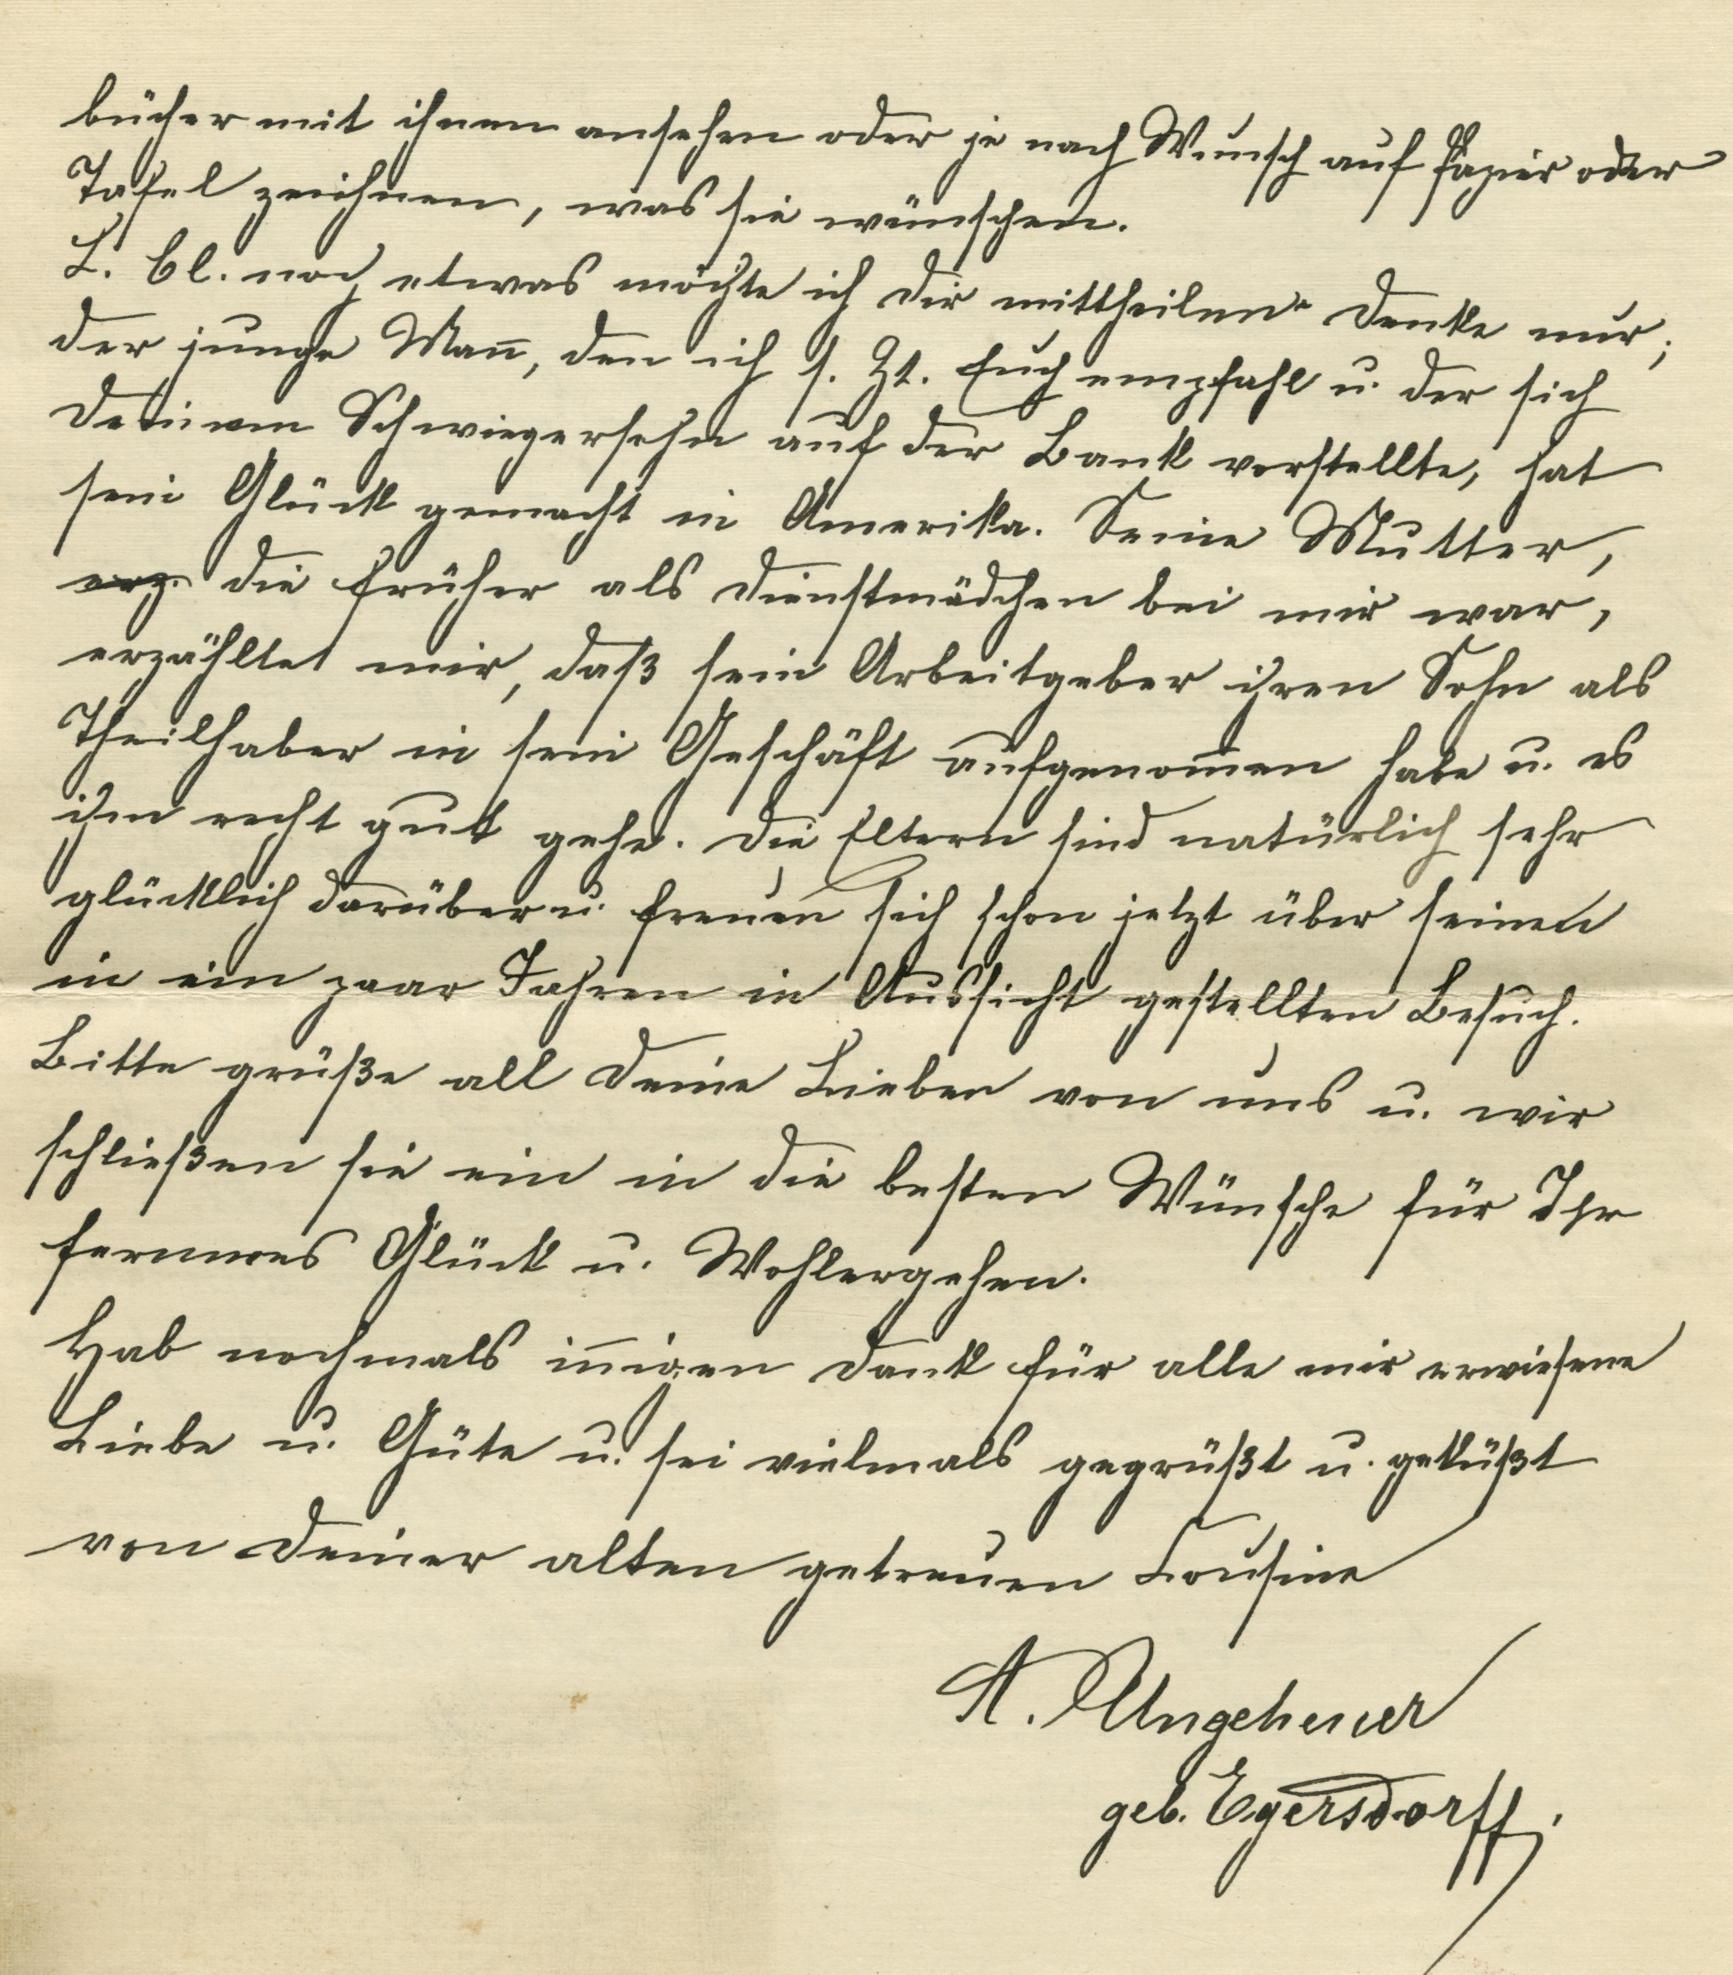 bücher mit ihnen ansehen oder je nach Wunsch auf Papier oder
Tafel zeichnen, was sie wünschen.
L. Cl. noch etwas möchte ich Dir mittheilen. Denke nur;
der junge Mañ, den ich s. Zt. Euch empfahl u. der sich
Deinem Schwiegersohn auf der Bank vorstellte, hat
sein Glück gemacht in Amerika. Seine Mutter,
erz. die früher als Dienstmädchen bei mir war,
erzähltet mir, daß sein Arbeitgeber ihren Sohn als
Theilhaber in sein Geschäft aufgenom̄en habe u. es
ihm recht gut gehe. Die Eltern sind natürlich sehr
glücklich darüber u. freuen sich schon jetzt über seinen
in ein paar Jahren in Aussicht gestellten Besuch.
Bitte grüße all Deine Lieben von uns u. wir
schließen sie ein in die besten Wünsche für Ihr
ferneres Glück u. Wohlergehen.
Hab nochmals iñigen Dank für alle mir erwiesene
Liebe u. Güte u. sei vielmals gegrüßt u. geküßt
von Deiner alten getreuen Cousine
A. Ungeheuer
geb. Egersdorff.